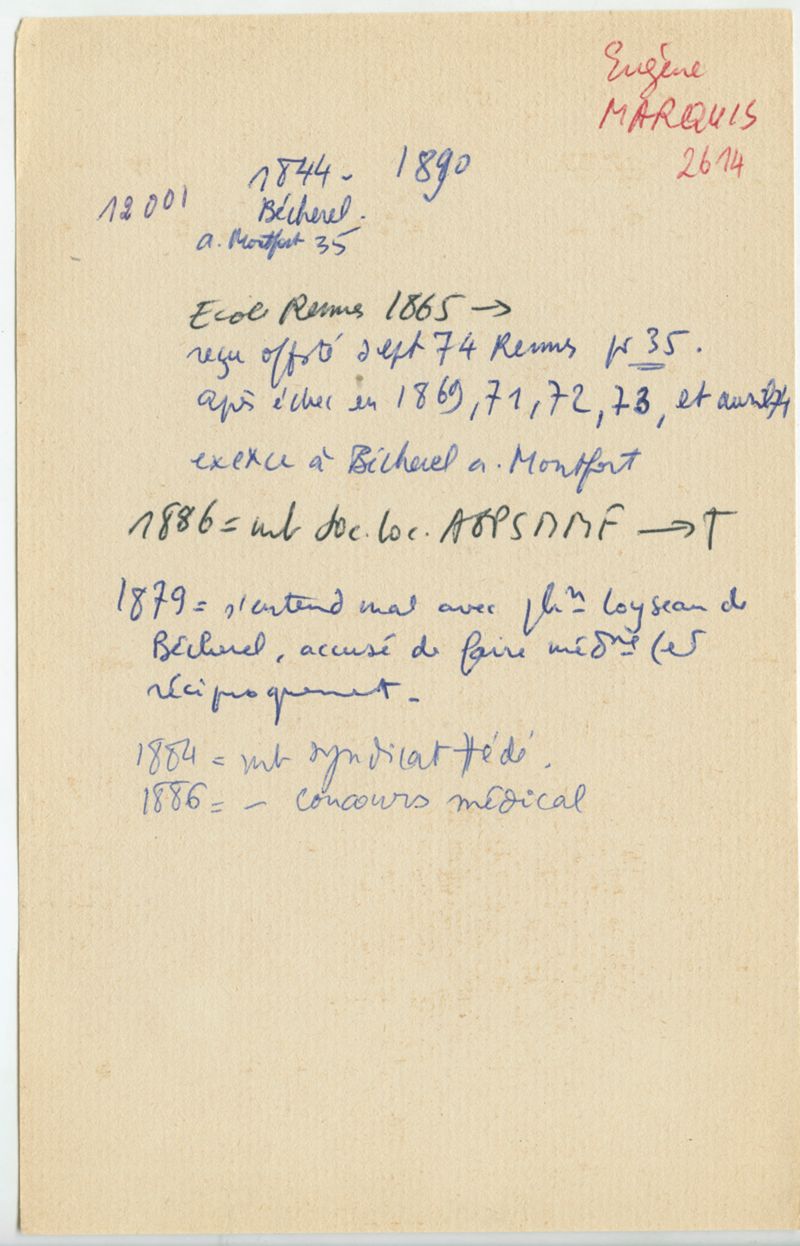 Eugène
MARQUIS
2614
1844 - 1890
12001
Bécherel.
a. Montfort 35
Ecole Rennes 1865 →
reçu offté sept 74 Rennes pr 35.
après échec en 1869, 71, 72, 73, et avril 74
exerce à Bécherel a. Montfort
1886 = mb Soc. loc. AGPSMMF → †
1879 = s'entend mal avec phn Loyseau de
Bécherel, accusé de faire médne (et
réciproquement -
1884 = mb syndicat Hédé.
1886 = - concours médical